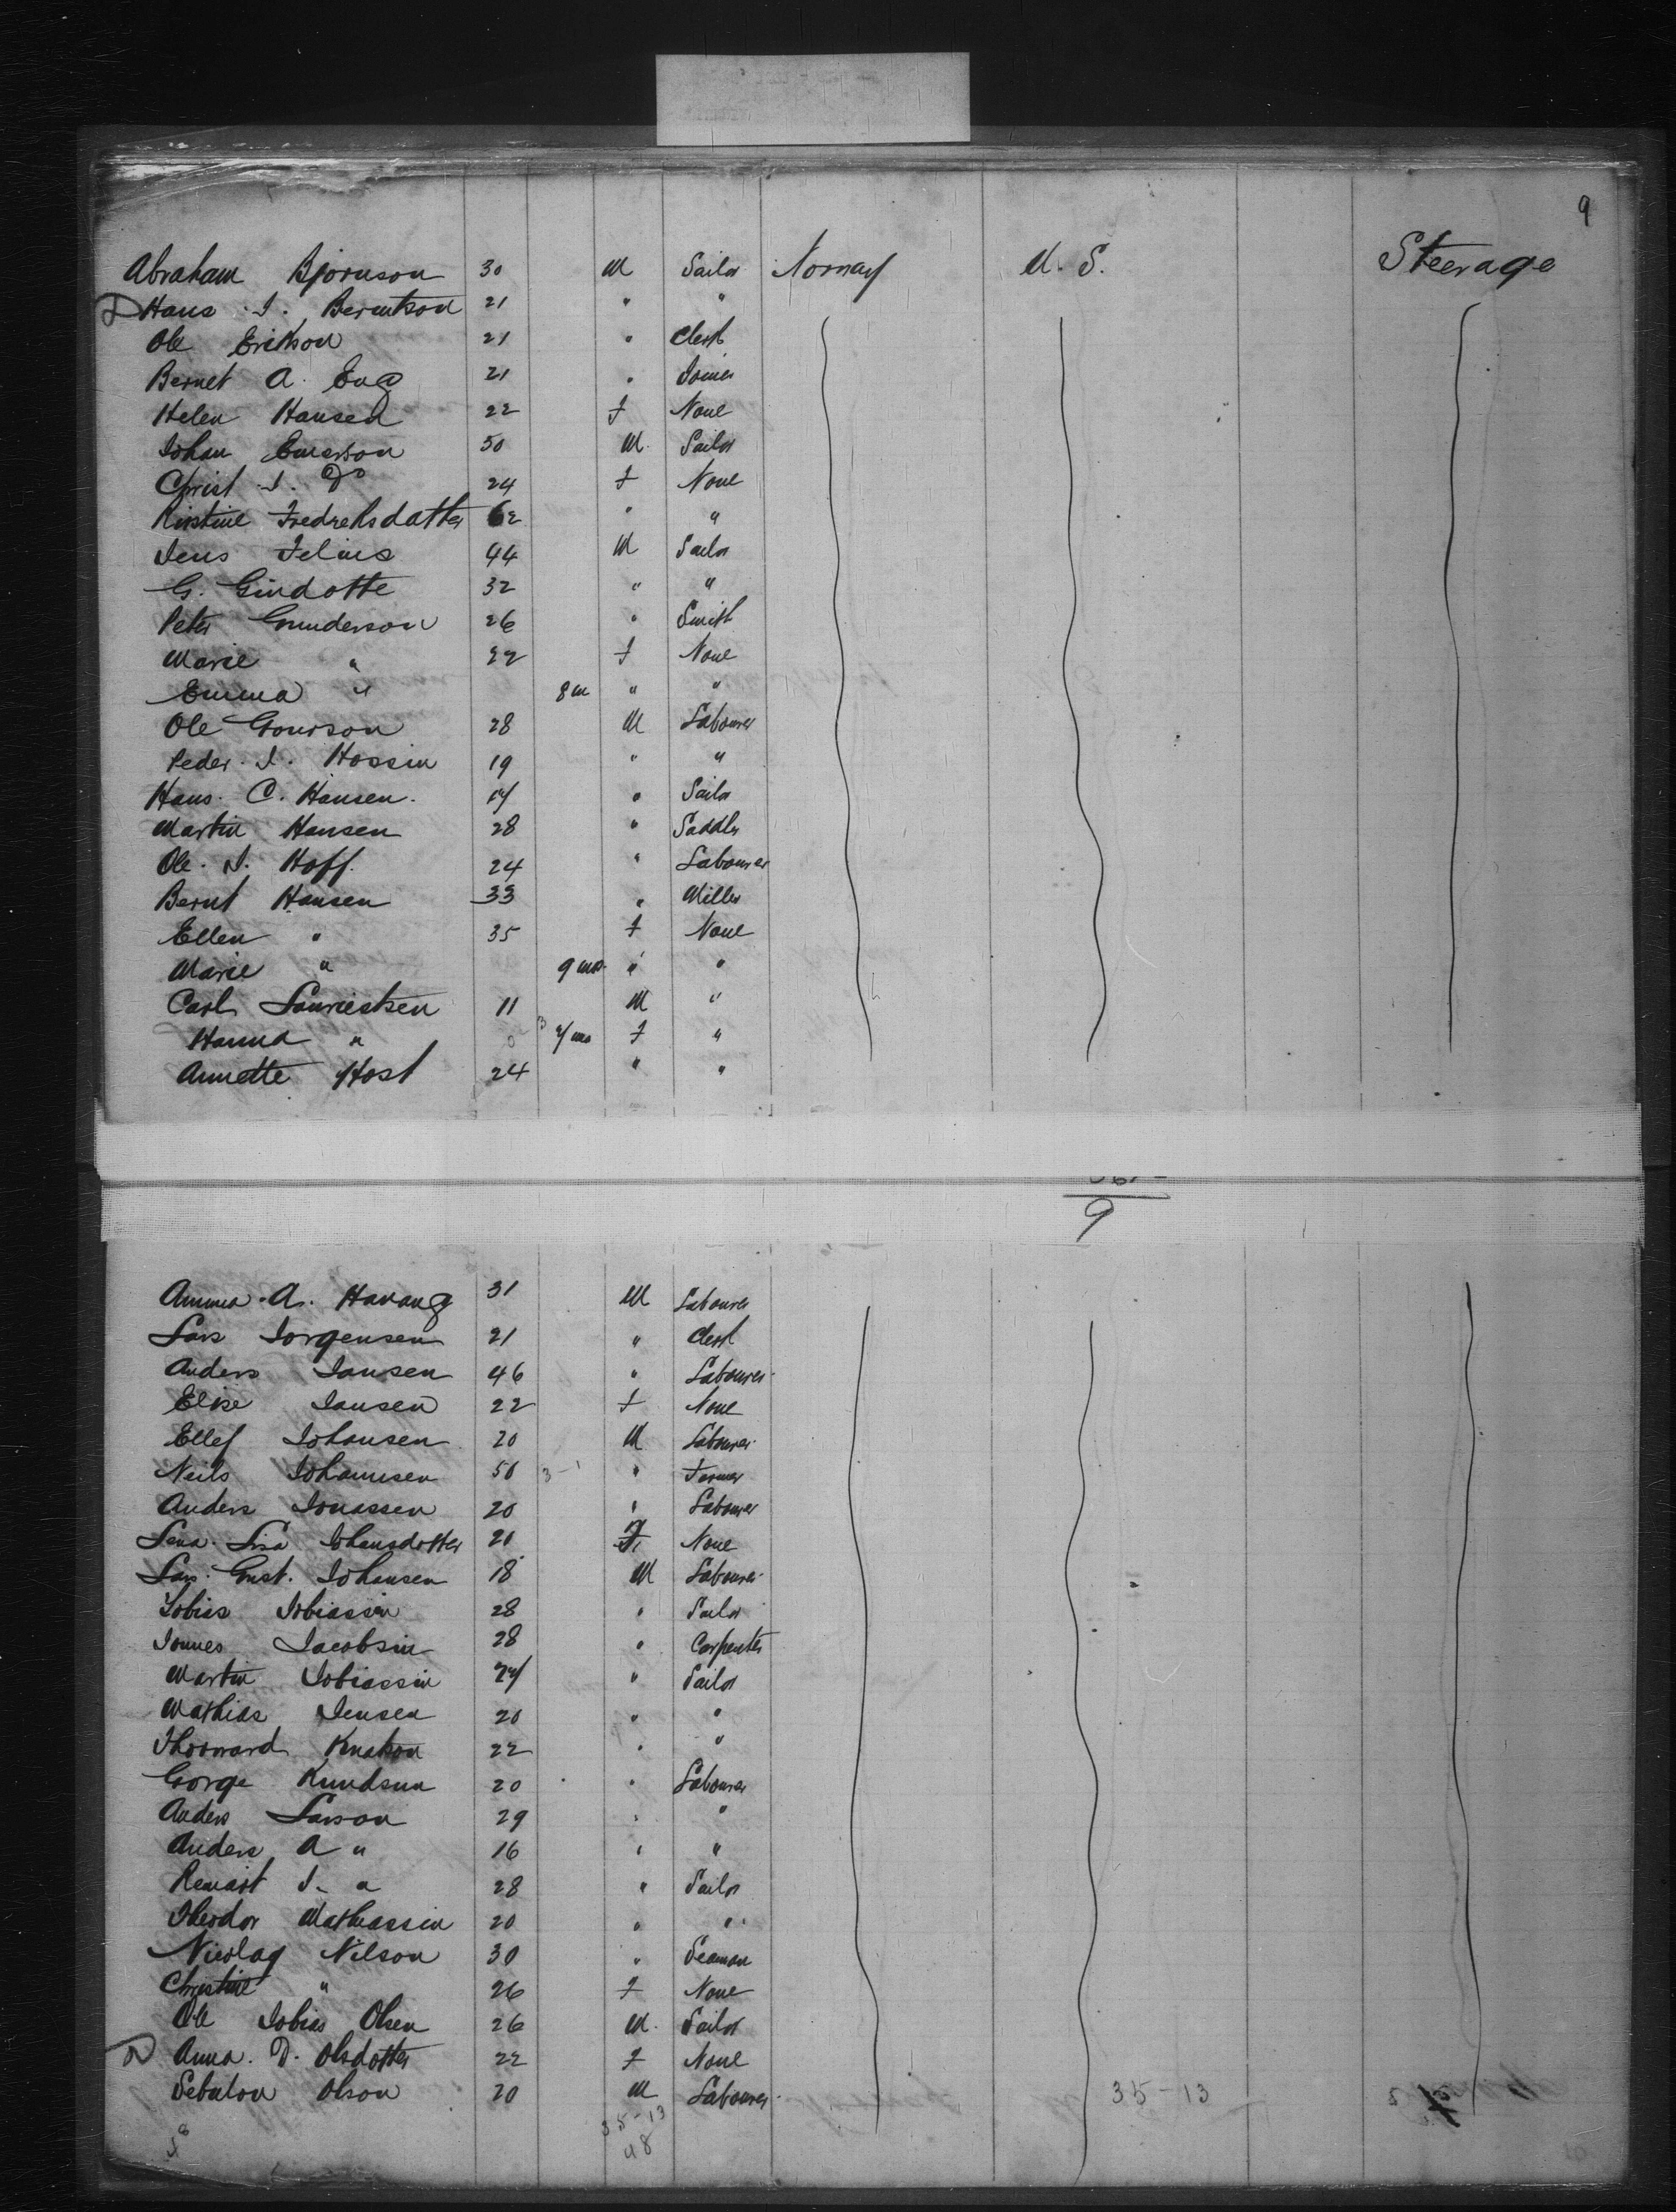 9
Abraham Bjornson 30 M Sailor Norway U. S. Steerage
Hans J. Berntson 21 " "
Ole Erikson 21 " Clerk
Bernet A. Eng 21 " Joiner
Helen Hansen 22 F None
Johan Emerson 50 M Sailor
Christ J. Do 24 F None
Kirstine Fredreksdatter 62 " "
Jens Felius 44 M Sailor
G. Gindotte 32 " "
Peter Gunderson 26 " Smith
Marie " 22 F None
Emma " 8 m " "
Ole Gourson 28 M Labourer
Peder J. Hossin 19 " "
Hans C. Hansen. 17 " Sailor
Martin Hansen 28 " Saddler
Ole J. Hoff. 24 " Labourer
Bernt Hansen 33 " Miller
Ellen " 35 F None
Marie " 9 mo " "
Carl Lauriestsen 11 M "
Hanna " 3 7/mo F "
Annette Host 24 " "
9
Ammo A. Havang 31 M Labourer
Lars Jorgensen 21 " Clerk
Anders Jansen 46 " Labourer
Elise Jansen 22 F None
Ellef Johansen 20 M Labourer
Neils Johannsen 50 3-1 " Farmer
Anders Jonassen 20 " Labourer
Lena Lisa Johansdotter 20 F None
Lars Gust. Johansen 18 M Labourer
Tobias Tobiassin 28 " Sailor
Jonnes Jacobsin 28 " Carpenter
Martin Tobiassin 27 " Sailor
Mathias Jensen 20 " "
Thorvard Knatson 22 " "
George Knudsen 20 " Labourer
Anders Larson 29 " "
Anders A " 16 " "
J. " 28 " Sailor
Theodor Mathiassin 20 " "
Nicolag Nilson 30 " Seaman
Christine " 26 F None
Ole Tobias Olsen 26 M Sailor
Anna D. Olsdotter 22 F None
Sebulon Olson 20 M Labourer 35-13
35-13
48